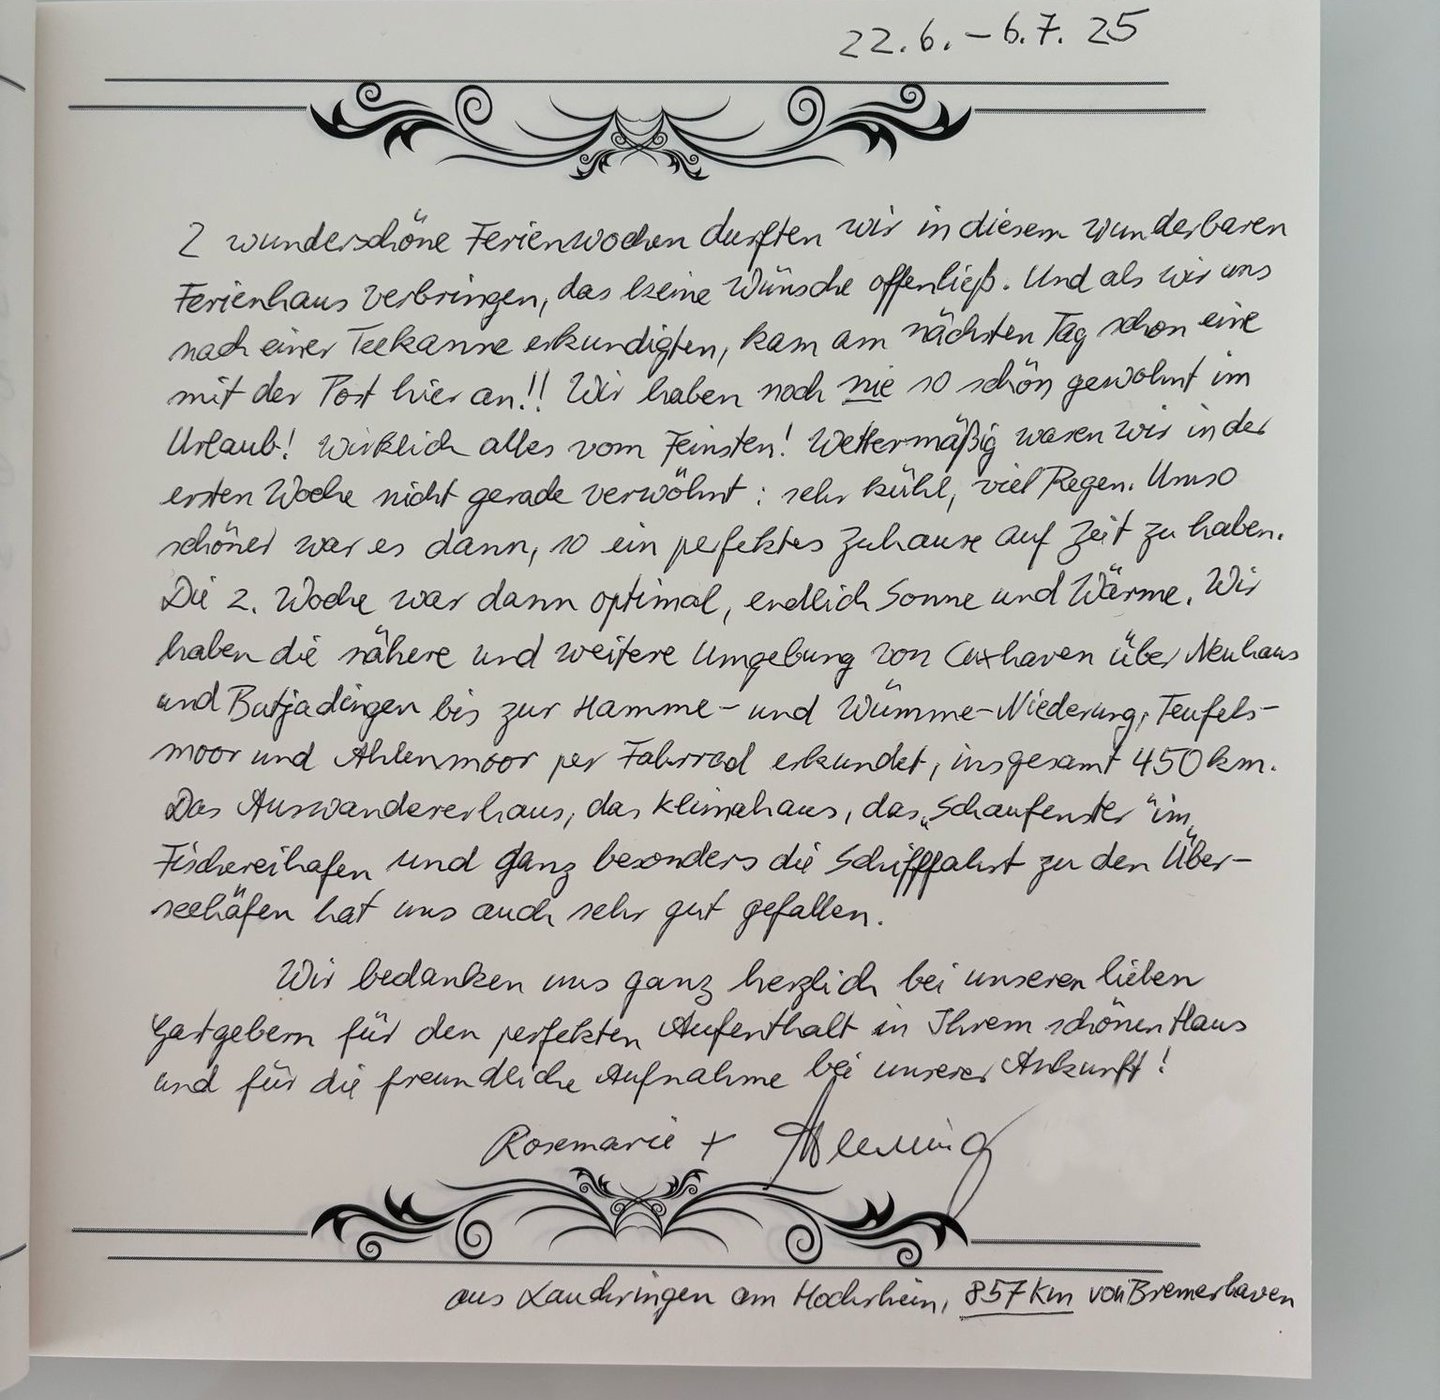 22.6. – 6.7. 25
2 wunderschöne Ferienwochen durften wir in diesem wunderbaren
Ferienhaus verbringen, das keine Wünsche offenließ. Und als wir uns
nach einer Teekanne erkundigten, kam am nächsten Tag schon eine
mit der Post hier an!! Wir haben noch nie so schön gewohnt im
Urlaub! Wirklich alles vom Feinsten! Wettermäßig waren wir in der
ersten Woche nicht gerade verwöhnt: sehr kühl, viel Regen. Umso
schöner war es dann, so ein perfektes Zuhause auf Zeit zu haben.
Die 2. Woche war dann optimal, endlich Sonne und Wärme. Wir
haben die nähere und weitere Umgebung von Cuxhaven über Neuhaus
und Butjadingen bis zur Hamme- und Wümme-Niederung, Teufels-
moor und Ahlenmoor per Fahrrad erkundet, insgesamt 450 km.
Das Auswandererhaus, das Klimahaus, das „Schaufenster" im
Fischereihafen und ganz besonders die Schifffahrt zu den Über-
seehäfen hat uns auch sehr gut gefallen.
Wir bedanken uns ganz herzlich bei unseren lieben
Gastgebern für den perfekten Aufenthalt in Ihrem schönen Haus
und für die freundliche Aufnahme bei unserer Ankunft!
Rosemarie + Henning
aus Lauchringen am Hochrhein, 857 km von Bremerhaven